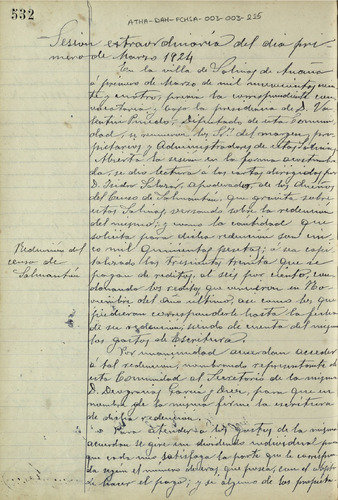 532
ATHA-DAH-FCHSA-002-003-225
Sesion extraordinaria del dia pri-
mero de Marzo 1924
En la villa de Salinas de Añana
a primero de Marzo de mil novecientos vein-
te y cuatro, previa la correspondiente con-
vocatoria, y bajo la presidencia de D. Va-
lentin Pinedo, Diputado de esta Comuni-
dad, se reunieron los Srs. del margen, pro-
pietarios y Administradores de estas Salinas,
Abierta la sesion en la forma acostumbra-
da, se dio lectura a las cartas dirigidas por
D. Isidor Salazar, apoderado de los dueños
del Censo de Salmantin, que gravita sobre
estas Salinas, versando sobre la redencion
del mismo; y como la cantidad que
solicita para dicha redencion son cin-
co mil quinientas pesetas; o sea capi-
talizado las trescientas treinta que se
pagan de reditos, al seis por ciento, con-
donando los reditos que vencieron en No-
viembre del año último, asi como los que
pudieran corresponderle hasta la fecha
de su redencion, siendo de cuenta del mismo
los gastos de Escritura.
Redencion del
censo de
Salmantin
Por unanimidad acuerdan acceder
a tal redencion, nombrando representante de
esta Comunidad al Secretario de la misma
D. Deogracias Garcia, para que en
nombre de la misma firme la escritura
de dicha redencion.
Para atender a los gastos de la misma
acuerdan se gire un dividendo individual por
que cada uno satisfaga la parte que le correspon-
da segun el numero de eras que posea, con el
de hacer el pago; y si alguno de los propieta-